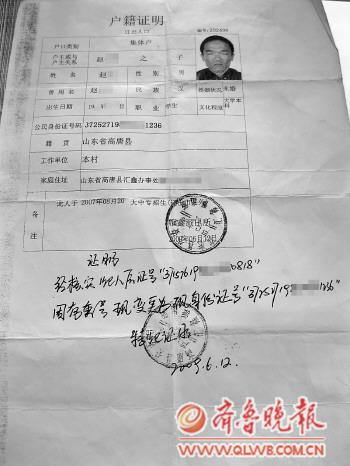 户籍证明
迁出人口
编号:
户口类别 集体户
户主或与户主关系 赵 之 子
姓名 赵 性别 男
曾用名 赵 民族 汉 婚姻状况 未婚
出生日期 19 年 月 职业 学生 文化程度 大学本科
公民身份证号码 37252719 1236
籍贯 山东省高唐县
工作单位 本村
家庭住址 山东省高唐县汇鑫办事处
备注
此人于2007年08月20 大中专招生
证明
经核实 此人原证号"3715
0818"
因有重号 现变更为 现身份证号"3725
1236"
特此证明
2009.6.12.
齐鲁晚报
WWW.QLWB.COM.CN